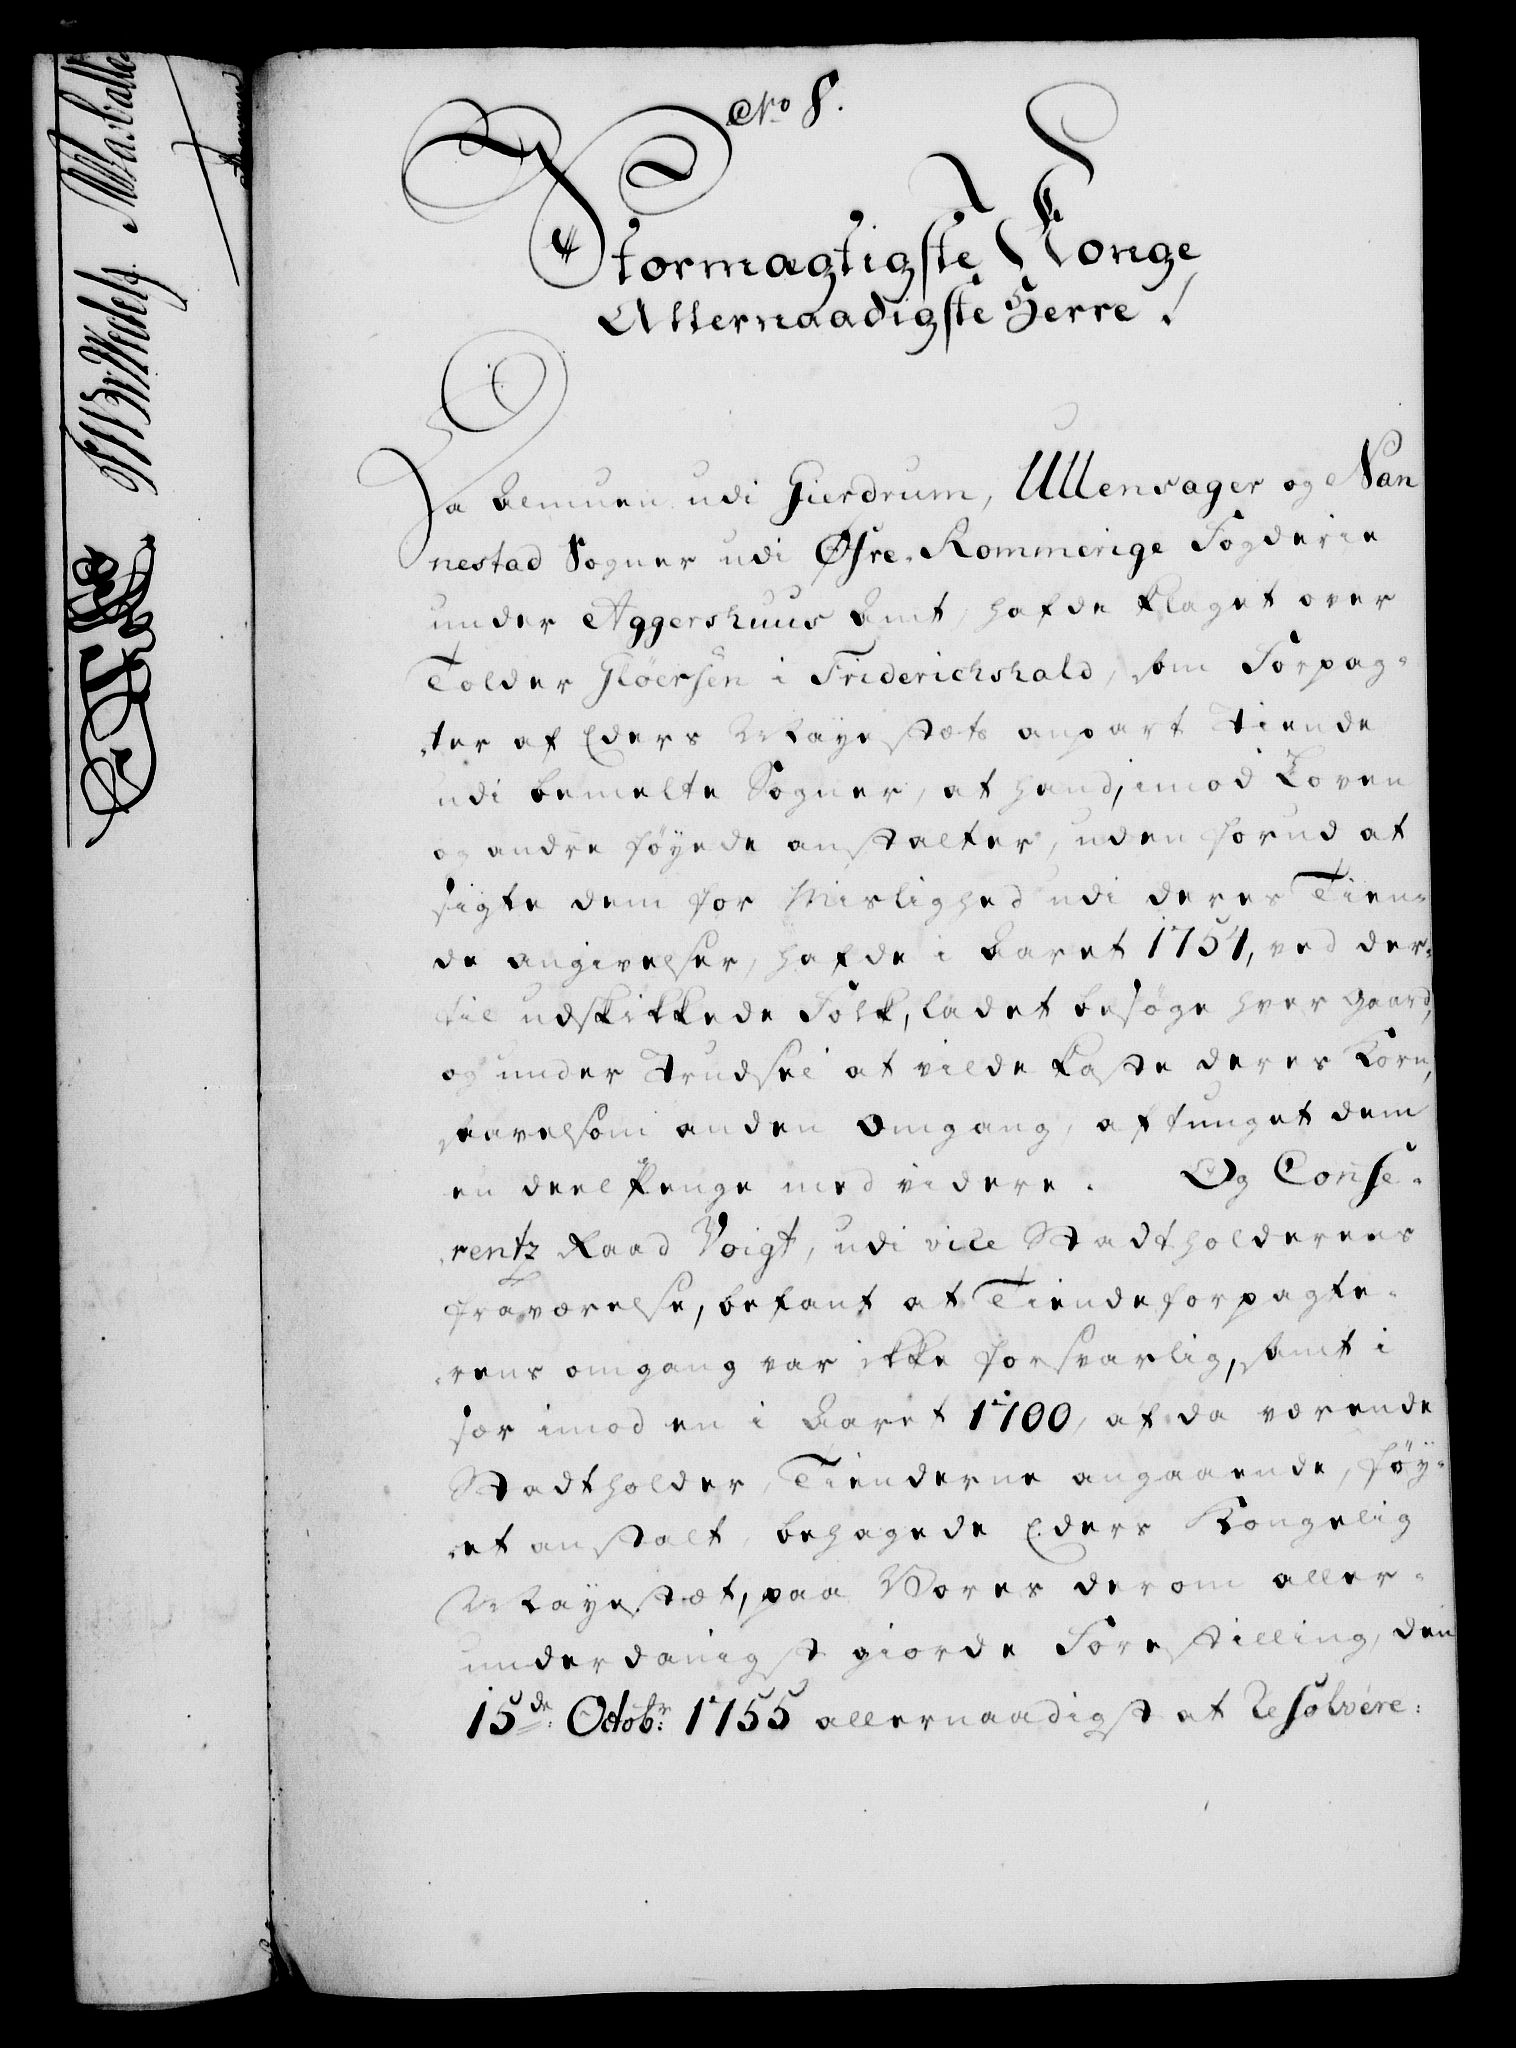 No 8.
Stormægtigste Konge
Allernaadigste Herre!
Da Almuen udi Gierdrum, Ullensager og Nan
nestad Sogner udi Øfre-Rommerige Fogderie
under Aggershuus Amt, hafde klaget over
Tolder Gløersen i Friderichshald, som Forpag-
ter af Eders Mayestæts anpart Tiende
udi bemelte Sogner, at hand, imod Loven
og andre føyede anstalter, uden forud at
sigte dem for Mislighed udi deres Tien-
de angivelser, hafde i Aaret 1754, ved der-
til udskikkede Folk, ladet besøge hver Gaard,
og under Trudsel at vilde kaste deres Korn,
saavelsom anden Omgang, aftunget dem
en deel Penge med videre. Og Confe-
rentz Raad Voigt, udi vice Stadtholderens
fraværelse, befant at Tiendeforpagte-
rens omgang var ikke forsvarlig, samt i
sær imod en i Aaret 1700, af da værende
Stadtholder, Tienderne angaaende, føy-
et anstalt, behagede Eders Kongelig
Mayestæt, paa Vores derom aller-
underdanigst giorde Forestilling, den
15de Octobr: 1755 allernaadigst at Resolvere: